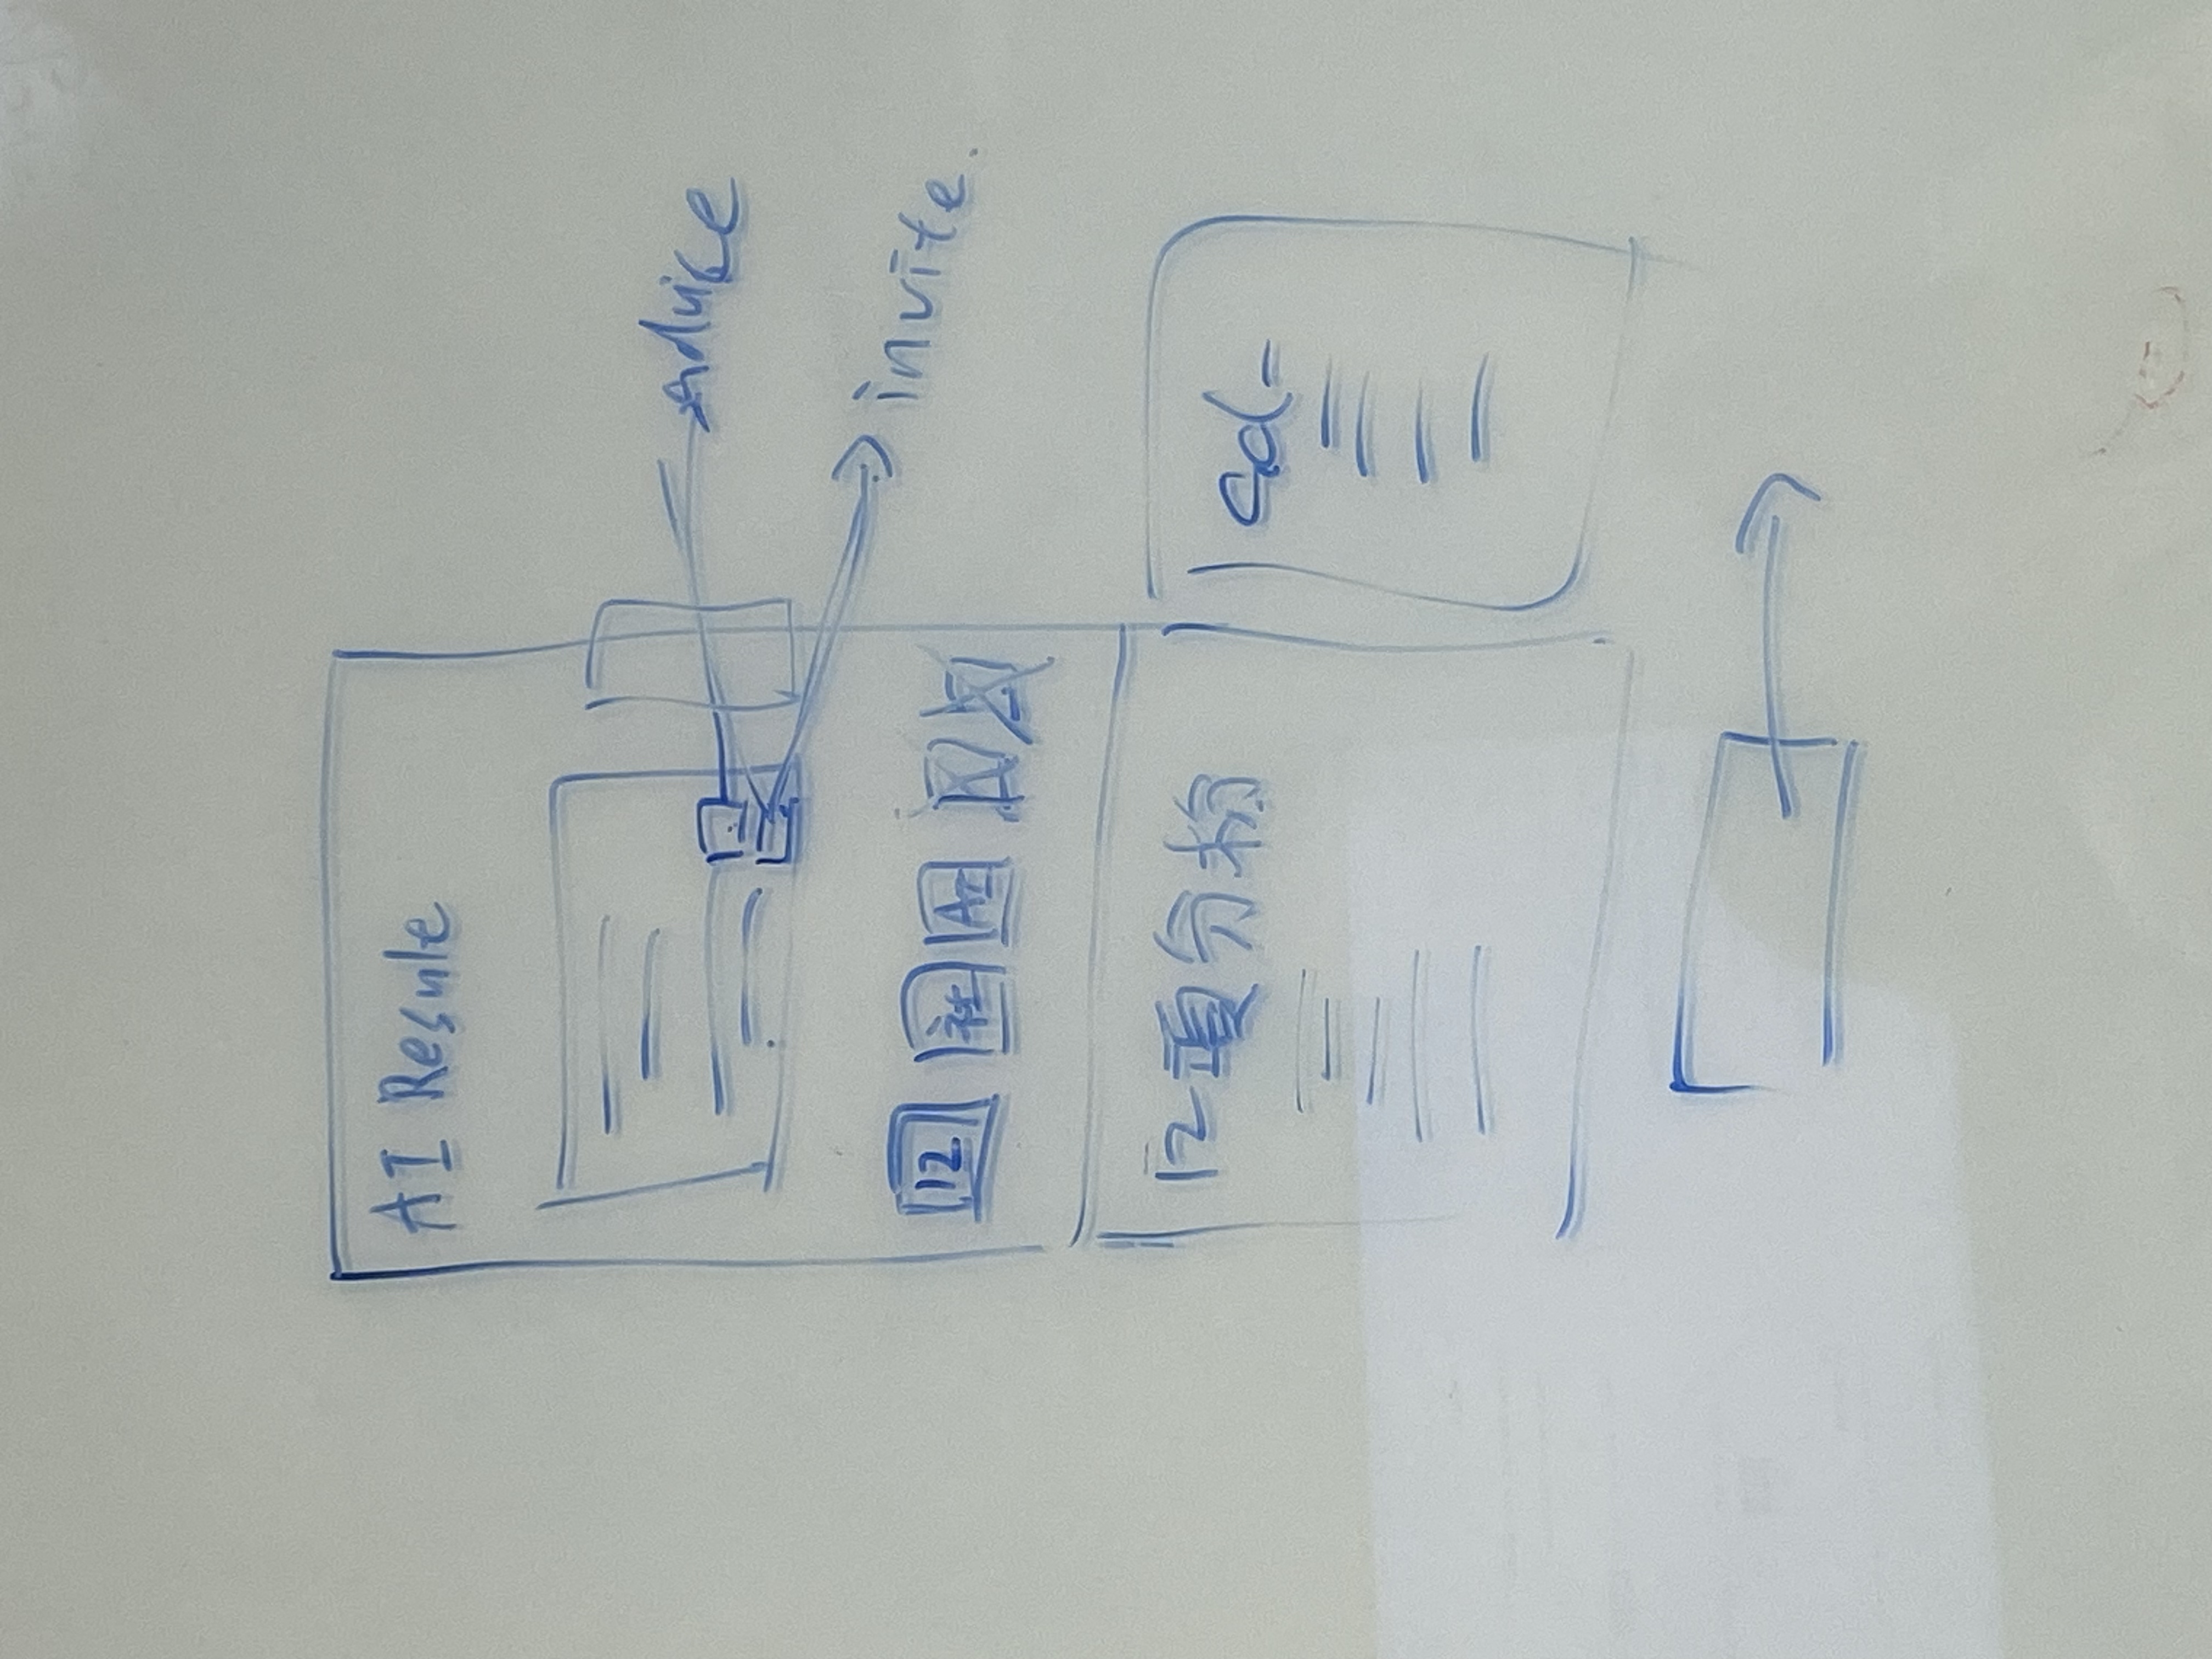 AI Resule
Advice
invite.
12
社
AI
12項分析